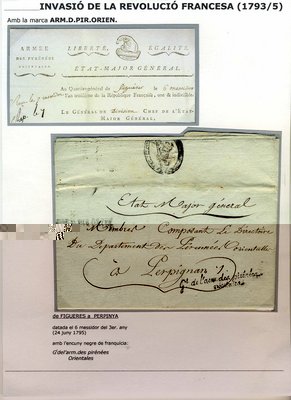 INVASIÓ DE LA REVOLUCIÓ FRANCESA (1793/5)
Amb la marca ARM.D.PIR.ORIEN.
ARMÉE
DES PYRÉNÉES
ORIENTALES
LIBERTÉ, ÉGALITÉ
ÉTAT-MAJOR GÉNÉRAL.
Au Quartier-général de figuieres le 6 messidor
l'an troisième de la République Française, une & indivisible
LE GÉNÉRAL DE division CHEF DE L'ÉTAT-
MAJOR GÉNÉRAL,
Etat Major général
Membres Composant Le Directoire
Du Département des Pirennées Orientalles
à Perpignan
Gl de l'arm. des pirénées
orientales
de FIGUERES a PERPINYA
datada el 6 messidor del 3er. any
(24 juny 1795)
amb l'encuny negre de franquícia:
Gl del'arm.des pirénées
Orientales